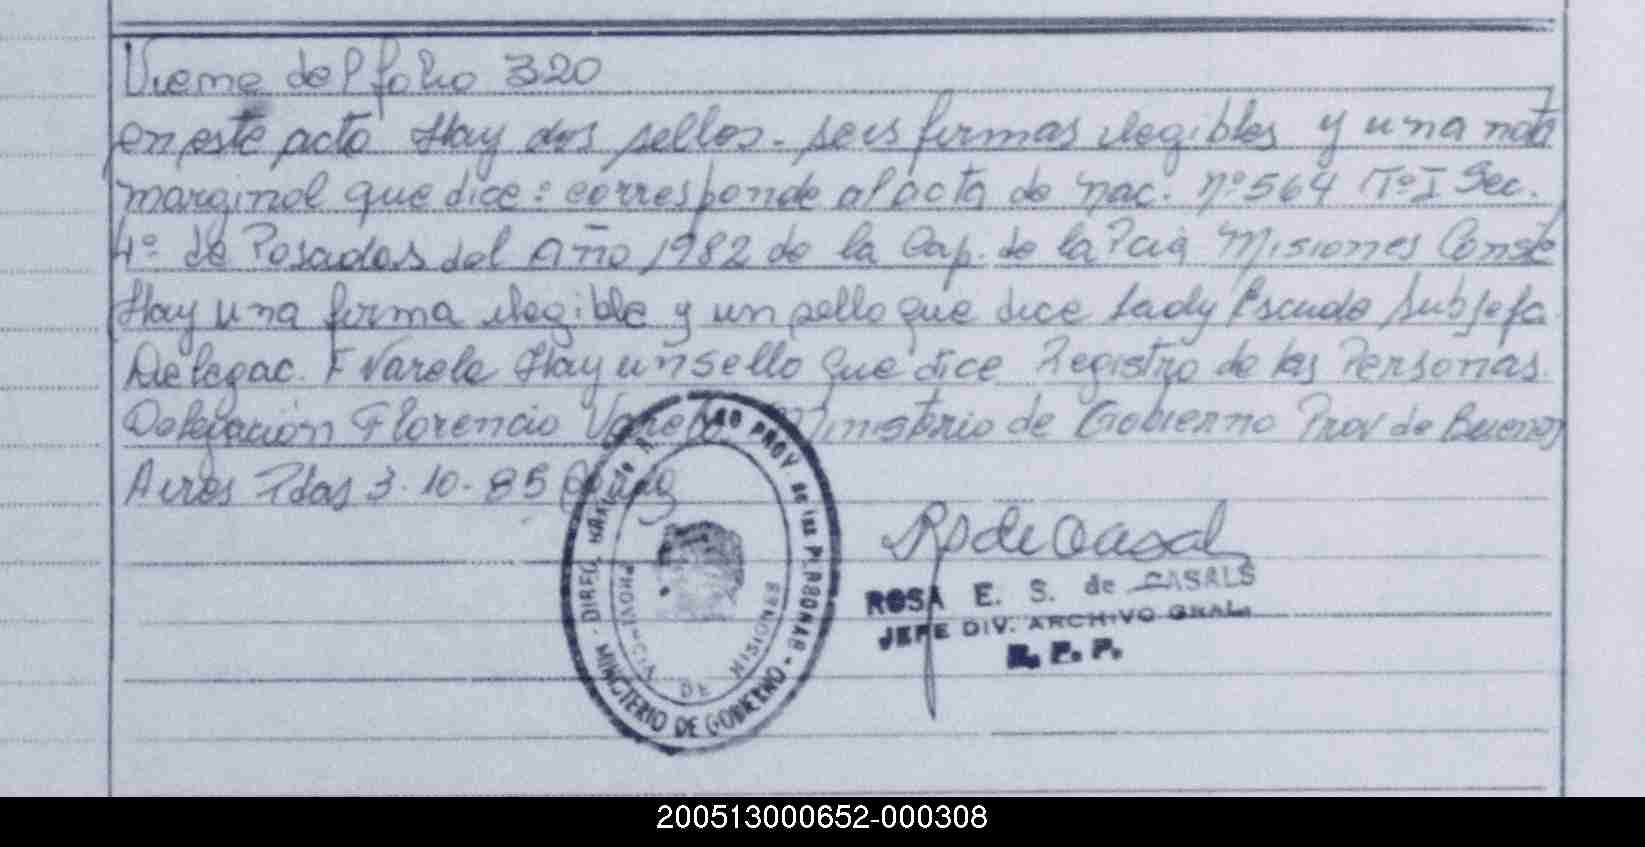 Viene del folio 320
en este acto Hay dos sellos - seis firmas ilegibles y una nota
marginal que dice: corresponde al acta de nac. nº 564 Tº I Sec.
4º de Posadas del Año 1982 de la Cap. de la Pcia Misiones Conste
Hay una firma ilegible y un sello que dice Lady Escude Subjefa
Delegac. F Varela Hay un sello que dice Registro de las Personas.
Delegación Florencio Varela Ministerio de Gobierno Prov de Buenos
Aires Pdas 3-10-85
PROV de las PERSONAS - MINISTERIO DE GOBIERNO -
PROVINCIA DE MISIONES
ROSA E. S. de CASALS
JEFE DIV. ARCHIVO GRAL.
R. P. P.
200513000652-000308